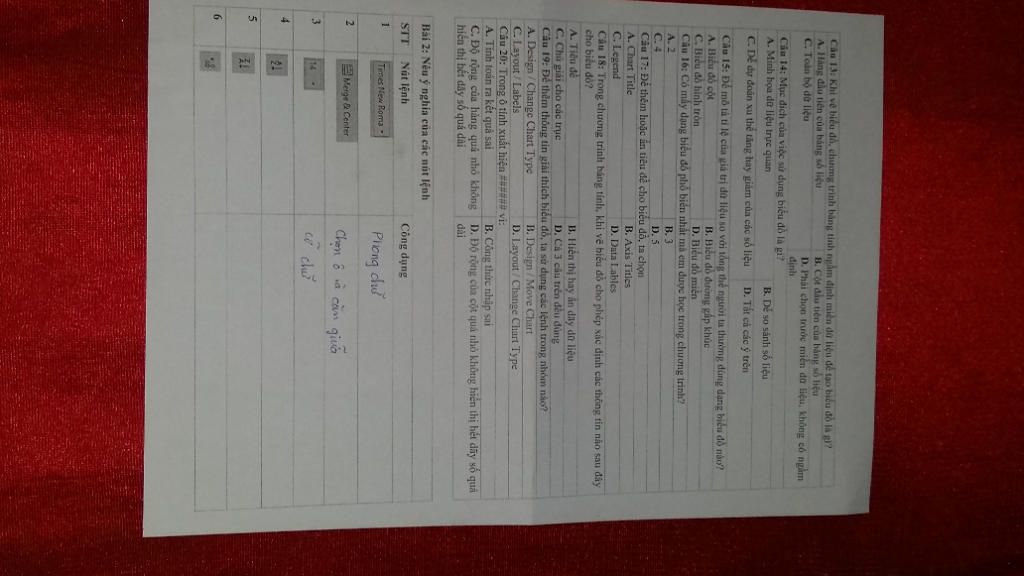 Câu 13: Khi vẽ biểu đồ, chương trình bảng tính ngầm định miền dữ liệu để tạo biểu đồ là gì?
A. Hàng đầu tiên của bảng số liệu B. Cột đầu tiên của bảng số liệu
C. Toàn bộ dữ liệu D. Phải chọn trước miền dữ liệu, không có ngầm
định
Câu 14: Mục đích của việc sử dụng biểu đồ là gì?
A. Minh họa dữ liệu trực quan B. Dễ so sánh số liệu
C. Dễ dự đoán xu thế tăng hay giảm của các số liệu D. Tất cả các ý trên
Câu 15: Để mô tả tỉ lệ của giá trị dữ liệu so với tổng thể người ta thường dùng dạng biểu đồ nào?
A. Biểu đồ cột B. Biểu đồ đường gấp khúc
C. Biểu đồ hình tròn D. Biểu đồ miền
Câu 16: Có mấy dạng biểu đồ phổ biến nhất mà em được học trong chương trình?
A. 2 B. 3
C. 4 D. 5
Câu 17: Để thêm hoặc ẩn tiêu đề cho biểu đồ, ta chọn
A. Chart Title B. Axis Titles
C. Legend D. Data Lables
Câu 18: Trong chương trình bảng tính, khi vẽ biểu đồ cho phép xác định các thông tin nào sau đây
cho biểu đồ?
A. Tiêu đề B. Hiển thị hay ẩn dãy dữ liệu
C. Chú giải cho các trục D. Cả 3 câu trên đều đúng
Câu 19: Để thêm thông tin giải thích biểu đồ, ta sử dụng các lệnh trong nhóm nào?
A. Design / Change Chart Type B. Design / Move Chart
C. Layout / Labels D. Layout / Change Chart Type
Câu 20: Trong ô tính xuất hiện ###### vì:
A. Tính toán ra kết quả sai B. Công thức nhập sai
C. Độ rộng của hàng quá nhỏ không D. Độ rộng của cột quá nhỏ không hiển thị hết dãy số quá
hiển thị hết dãy số quá dài dài
Bài 2: Nêu ý nghĩa của các nút lệnh
STT Nút lệnh Công dụng
1 Times New Roma Phong chữ
2 Merge & Center Chọn ô và căn giữa
3 14 cỡ chữ
4
5
6